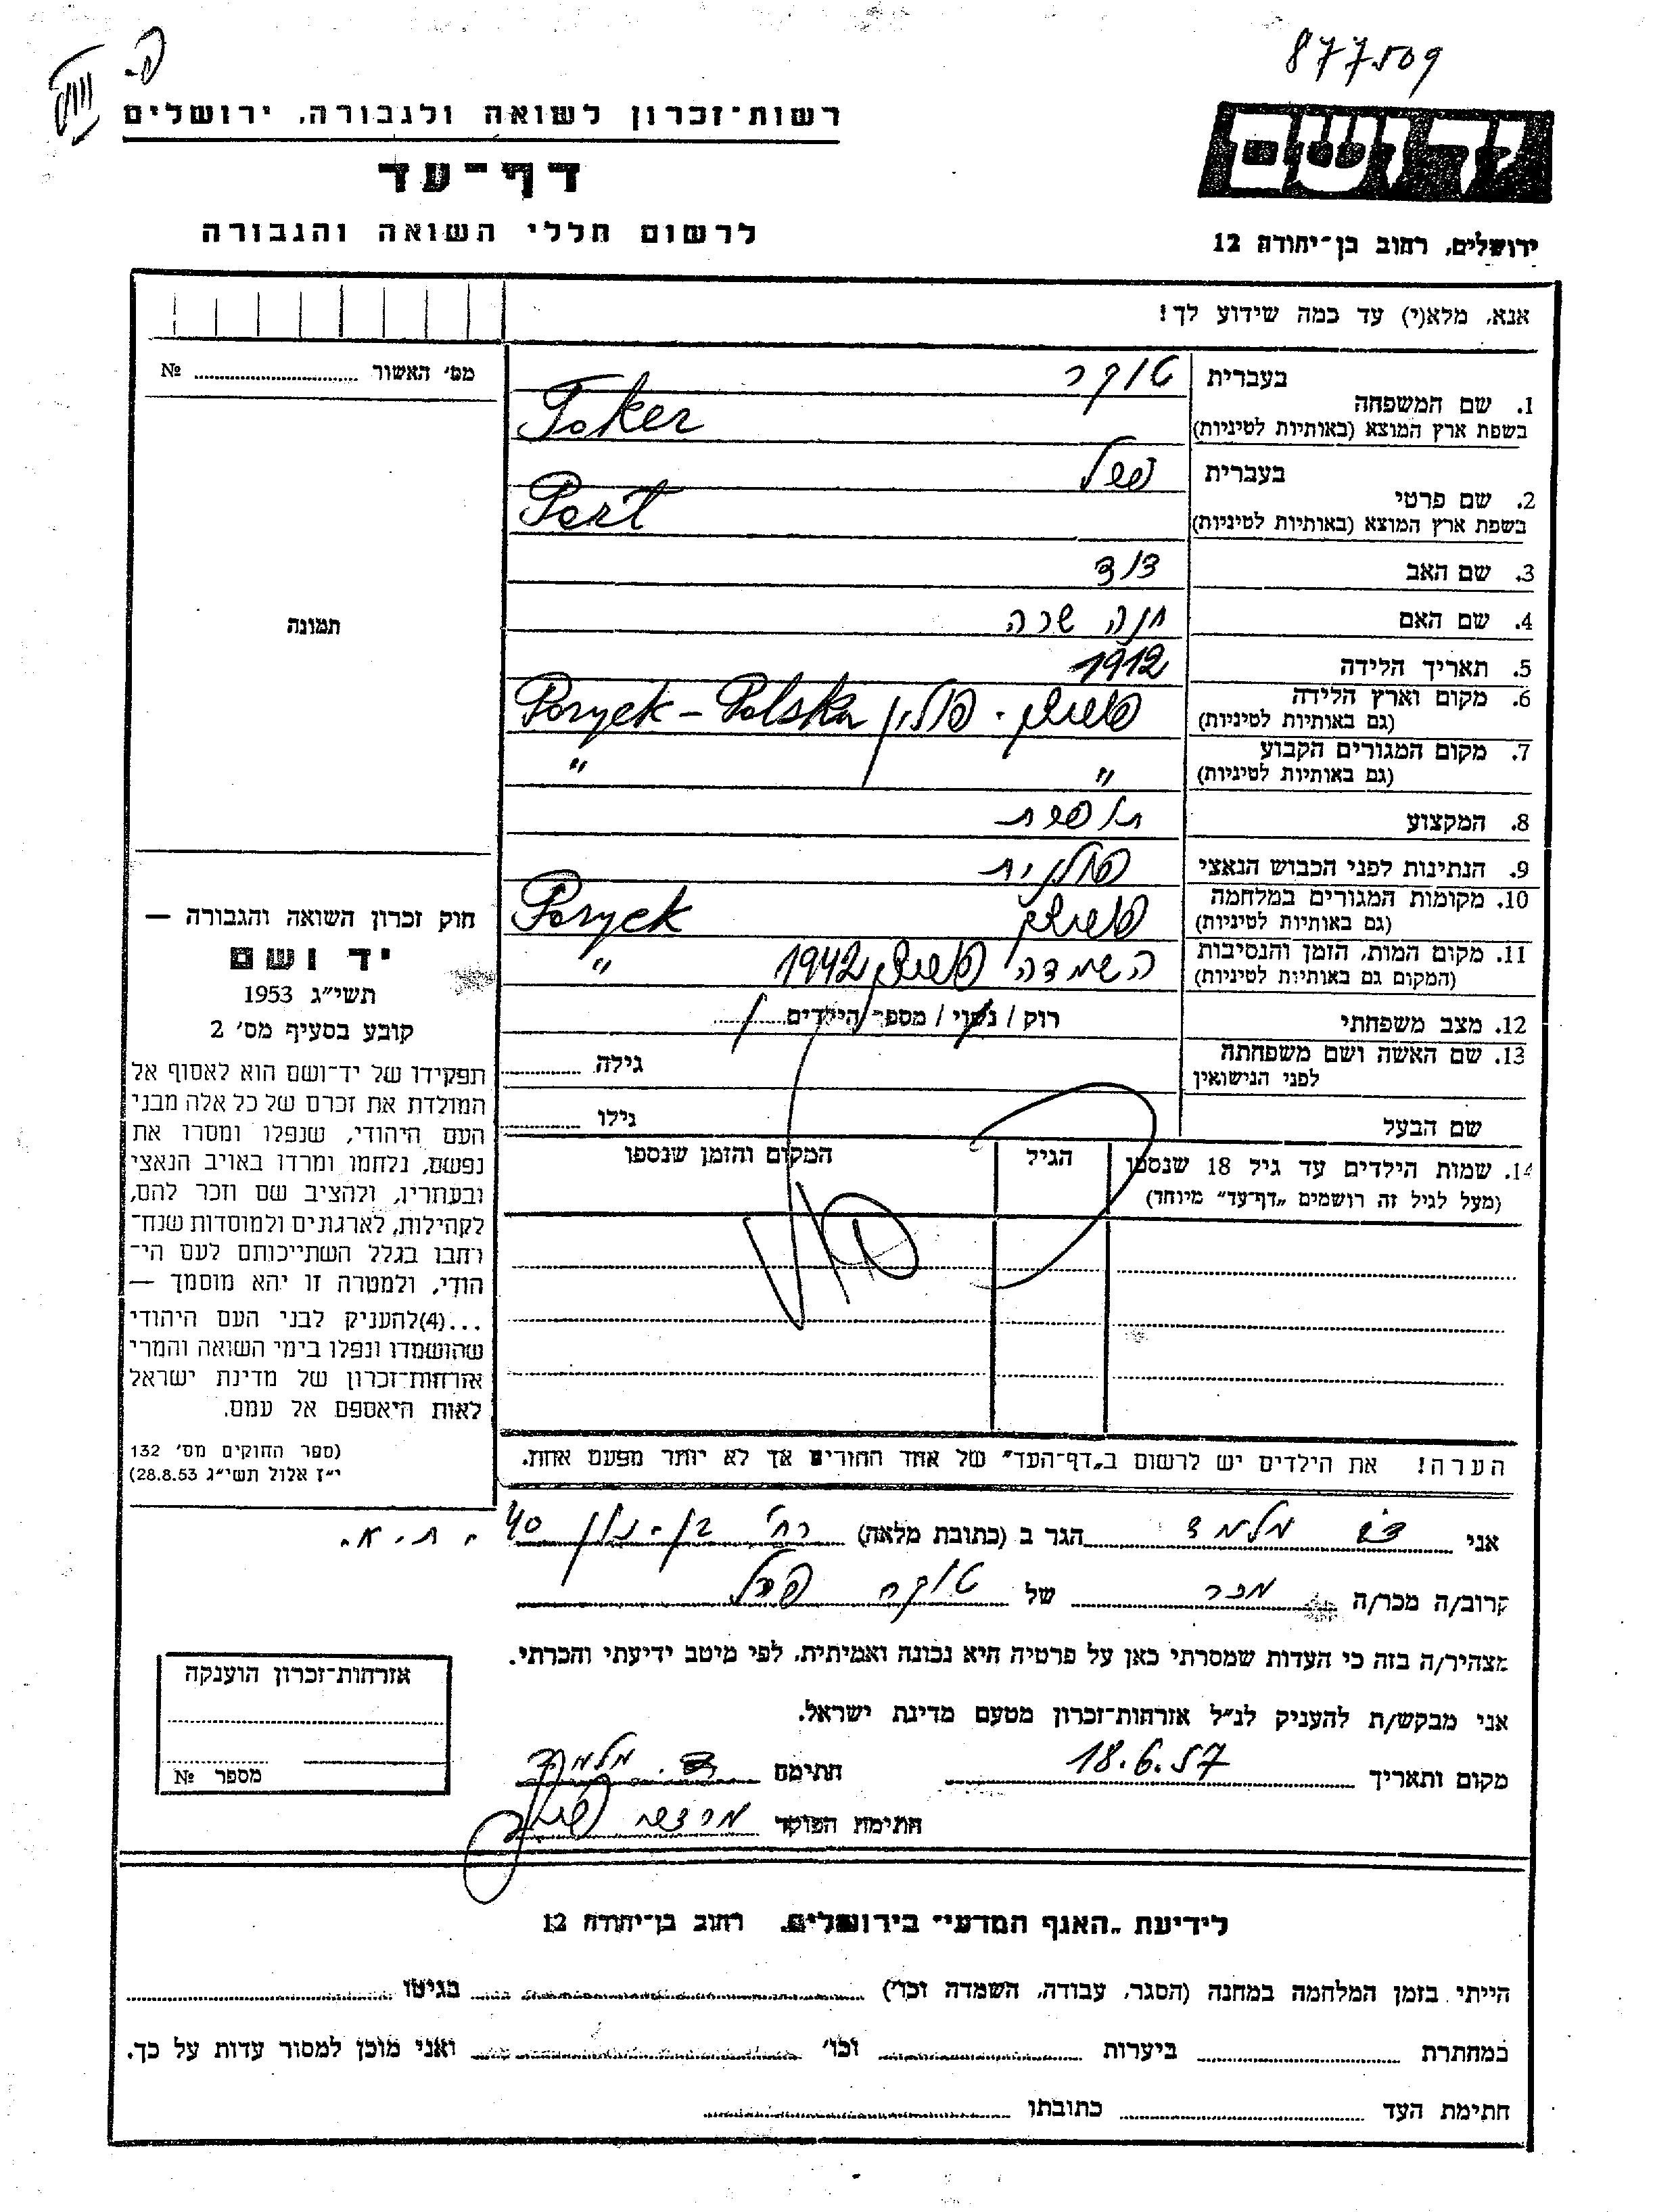 877509
פ.
רשות־זכרון לשואה ולגבורה, ירושלים
יד ושם
דף־עד
לרשום חללי השואה והגבורה
ירושלים, רחוב בן־יהודה 12
אנא, מלא(י) עד כמה שידוע לך!
מס׳ האשור № 
1. שם המשפחה בעברית טוקר
בשפת ארץ המוצא (באותיות לטיניות) Toker
2. שם פרטי בעברית
בשפת ארץ המוצא (באותיות לטיניות) Perl
3. שם האב דוד
4. שם האם חנה שרה
5. תאריך הלידה 1912
6. מקום וארץ הלידה פוריצק - פולין Poryck - Polska
(גם באותיות לטיניות)
7. מקום המגורים הקבוע " "
(גם באותיות לטיניות)
8. המקצוע תופרת
9. הנתינות לפני הכבוש הנאצי פולנית
10. מקומות המגורים במלחמה פוריצק Poryck
(גם באותיות לטיניות)
11. מקום המות, הזמן והנסיבות השמדה פוריצק 1942 "
(המקום גם באותיות לטיניות)
12. מצב משפחתי רוק / נשוי / מספר הילדים
13. שם האשה ושם משפחתה גילה
לפני הנישואין
שם הבעל גילו
14. שמות הילדים עד גיל 18 שנספו הגיל המקום והזמן שנספו
(מעל לגיל זה רושמים „דף־עד" מיוחד)
הערה! את הילדים יש לרשום ב„דף־העד" של אחד ההורים אך לא יותר מפעם אחת.
תמונה
חוק זכרון השואה והגבורה —
יד ושם
תשי״ג 1953
קובע בסעיף מס׳ 2
תפקידו של יד־ושם הוא לאסוף אל
המולדת את זכרם של כל אלה מבני
העם היהודי, שנפלו ומסרו את
נפשם, נלחמו ומרדו באויב הנאצי
ובעוזריו, ולהציב שם וזכר להם,
לקהילות, לארגונים ולמוסדות שנח־
רבו בגלל השתייכותם לעם הי־
הודי, ולמטרה זו יהא מוסמך —
...(4)להעניק לבני העם היהודי
שהושמדו ונפלו בימי השואה והמרי
אזרחות־זכרון של מדינת ישראל
לאות היאספם אל עמם.
(ספר החוקים מס׳ 132
י״ז אלול תשי״ג 28.8.53)
אני מלמד הגר ב (כתובת מלאה) רח׳ בן-נון 40 . ת. א.
קרוב/ה מכר/ה מכר של טוקר פרל
מצהיר/ה בזה כי העדות שמסרתי כאן על פרטיה היא נכונה ואמיתית, לפי מיטב ידיעתי והכרתי.
אני מבקש/ת להעניק לנ״ל אזרחות־זכרון מטעם מדינת ישראל.
מקום ותאריך 18.6.57 חתימה מלמד
חתימת הפוקד
אזרחות־זכרון הוענקה
מספר №
לידיעת „האגף המדעי" בירושלים, רחוב בן־יהודה 12
הייתי בזמן המלחמה במחנה (הסגר, עבודה, השמדה וכו׳) בגיטו
במחתרת ביערות וכו׳ ואני מוכן למסור עדות על כך.
חתימת העד כתובתו